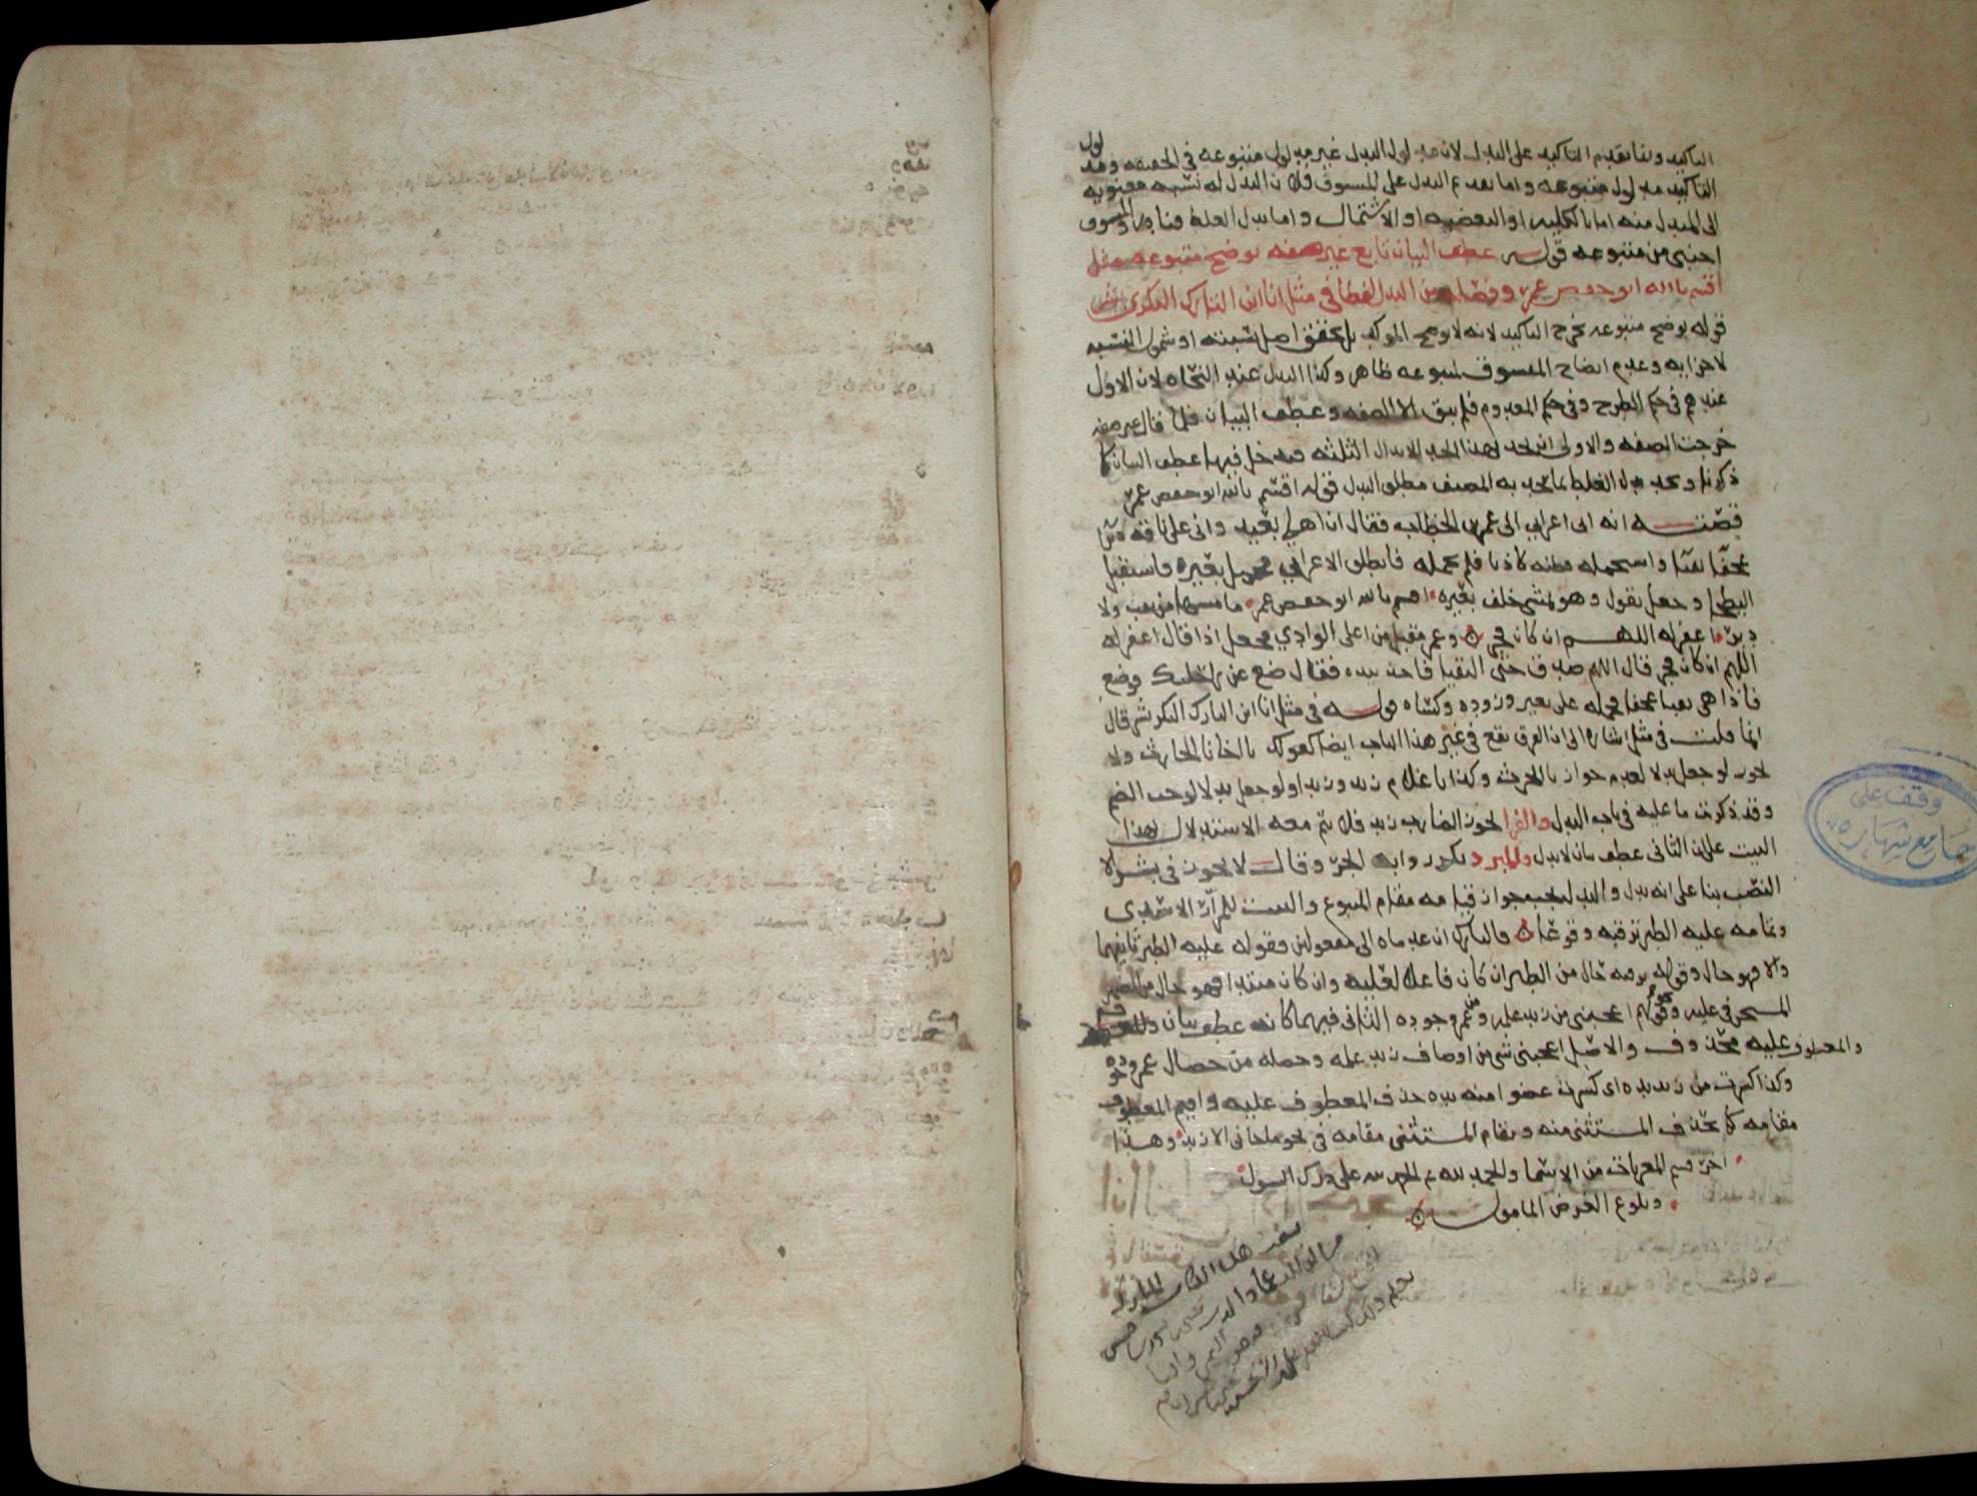 التاكيد وانما يقدم التاكيد على البدل لان مدلول البدل غير مدلول متبوعه في الحقيقه ومدلول
التاكيد مدلول متبوعه واما تقدم البدل على المنسوق فلان البدل له نسبه معنويه
الى المبدل منه اما بالكليه او البعضيه او الاشتمال واما بدل الغلط فنادر والمنسوق
اجنبي من متبوعه قوله عطف البيان تابع غير صفه يوضح متبوعه مثل
اقسم بالله ابو حفص عمر وفصله من البدل لفظا في مثل انا ابن التارك البكري بشر
قوله يوضح متبوعه يخرج التاكيد لانه لا يوضح الموكد بل يحقق اصل نسبته او شمول النسبه
لاجزايه وعدم ايضاح المنسوق لمتبوعه ظاهر وكذا البدل عند النحاه لان الاول
عندهم في حكم الطرح وفي حكم المعدوم فلم يبق الا الصفه وعطف البيان فلما قال غير صفه
خرجت الصفه والاولى ان يحد بهذا الحد الابدال الثلثه فيدخل فيها عطف البيان كما
ذكرنا ويحد بدل الغلط بما يحد به المصنف مطلق البدل قوله اقسم بالله ابو حفص عمر
قصته انه اتى اعرابي الى عمر بن الخطاب فقال ان اهلي بعيد واني على ناقه دبرا
عجفا نقبا واستحمله فظنه كاذبا فلم يحمله فانطلق الاعرابي فحمل بعيره فاستقبل
البطحا وجعل يقول وهو يمشي خلف بعيره اقسم بالله ابو حفص عمر ما مسها من نقب ولا
دبر اغفر له اللهم ان كان فجر وعمر مقبل من اعلى الوادي فجعل اذا قال اغفر له
اللهم ان كان فجر قال اللهم صدق حتى التقيا فاخذ بيده فقال ضع عن راحلتك فوضع
فاذا هي نقبا عجفا فحمله على بعير وزوده وكساه قوله في مثل انا ابن التارك البكري بشر قال
انما قلت في مثل اشاره الى ان الفرق يقع في غير هذا الباب ايضا كقولك يا اخانا الحارث ولا
يجوز لو جعل بدلا لعدم جواز يا الحرث وكذا يا غلام زيد وزيدا ولو جعل بدلا لوجب الضم
وقد ذكرت ما عليه في باب البدل والفرا يجوز الضارب زيد فلا يتم معه الاستدلال بهذا
البيت على ان الثاني عطف بيان لا بدل والمبرد ينكر روايه الجر وقال لا يجوز في بشر الا
النصب بنا على انه بدل والبدل يجب جواز قيامه مقام المتبوع والبيت للمرار الاسدي
وتمامه عليه الطير ترقبه وقوعا والتارك ان عديناه الى مفعولين فقوله عليه الطير ثانيهما
والا فهو حال وقوله ترقبه حال من الطير ان كان فاعلا لعليه وان كان مبتدا فهو حال من الضمير
المستكن في عليه وقولهم اعجبني من زيد علمه ومن عمرو جوده الثاني فيهما كانه عطف بيان
والمعطوف عليه محذوف والاصل اعجبني شي من اوصاف زيد علمه وخصله من خصال عمرو جوده
وكذا كسرت من زيد يده اي كسرت عضوا منه يده حذف المعطوف عليه واقيم المعطوف
مقامه كما يحذف المستثنى منه ويقام المستثنى مقامه في نحو ما جاني الا زيد وهذا
اخر قسم المعربات من الاسما والحمد لله على درك السول
وبلوغ الغرض المامول
وقف على
جامع شهاره